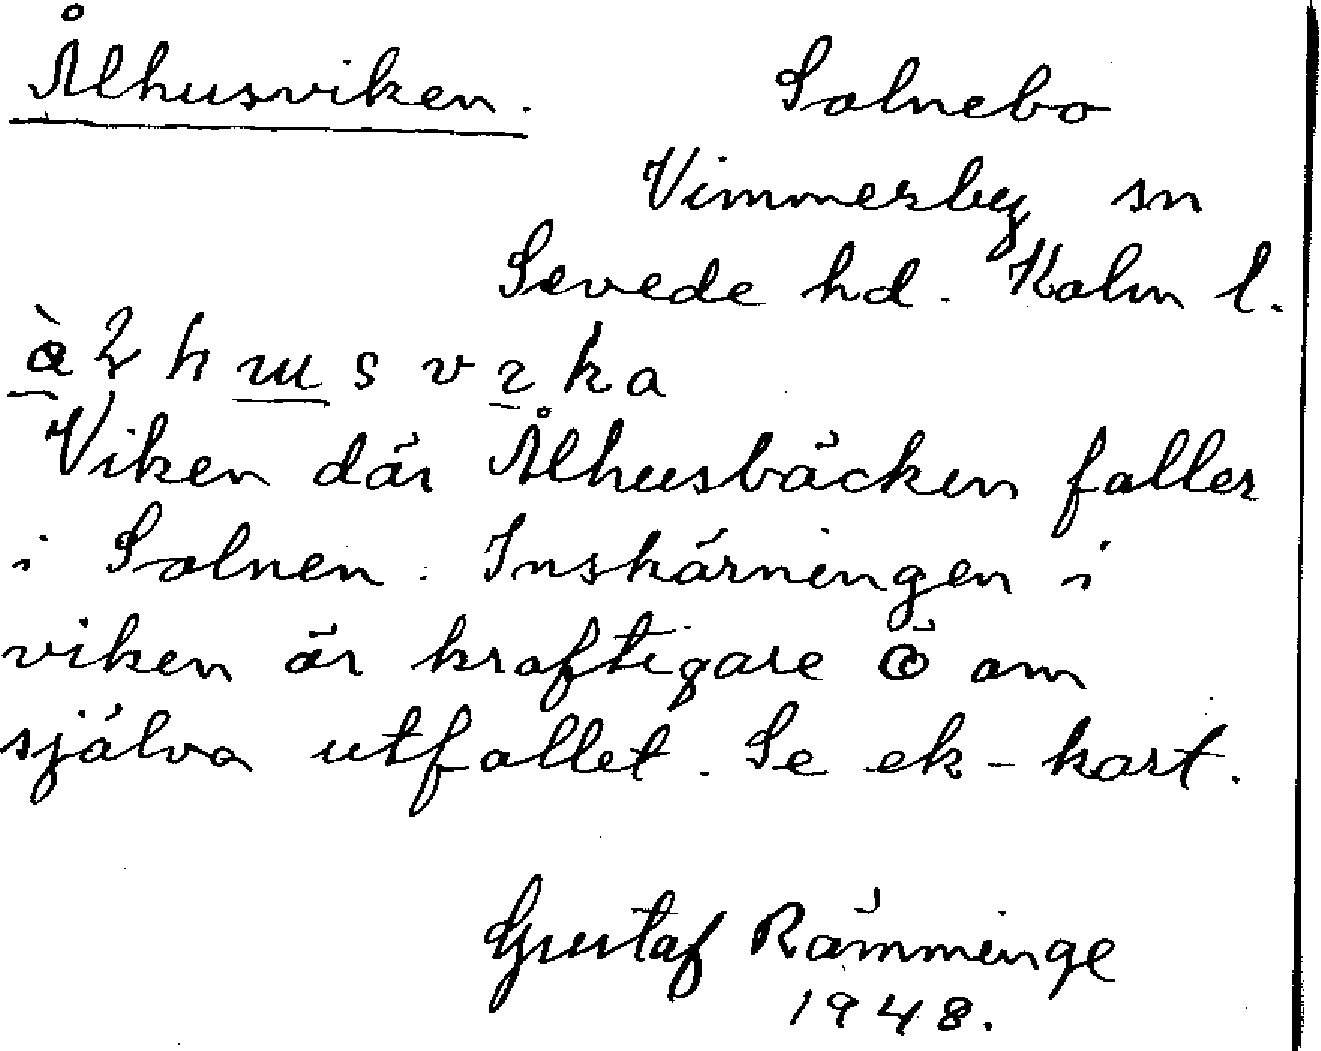 Ålhusviken. Solnebo
Vimmerby sn
Sevede hd. Kalm l.
Viken där Ålhusbäcken faller
i Solnen. Inskärningen i
viken är kraftigare Ö om
själva utfallet. Se ek-kart.
Gustaf Rämminge
1948.